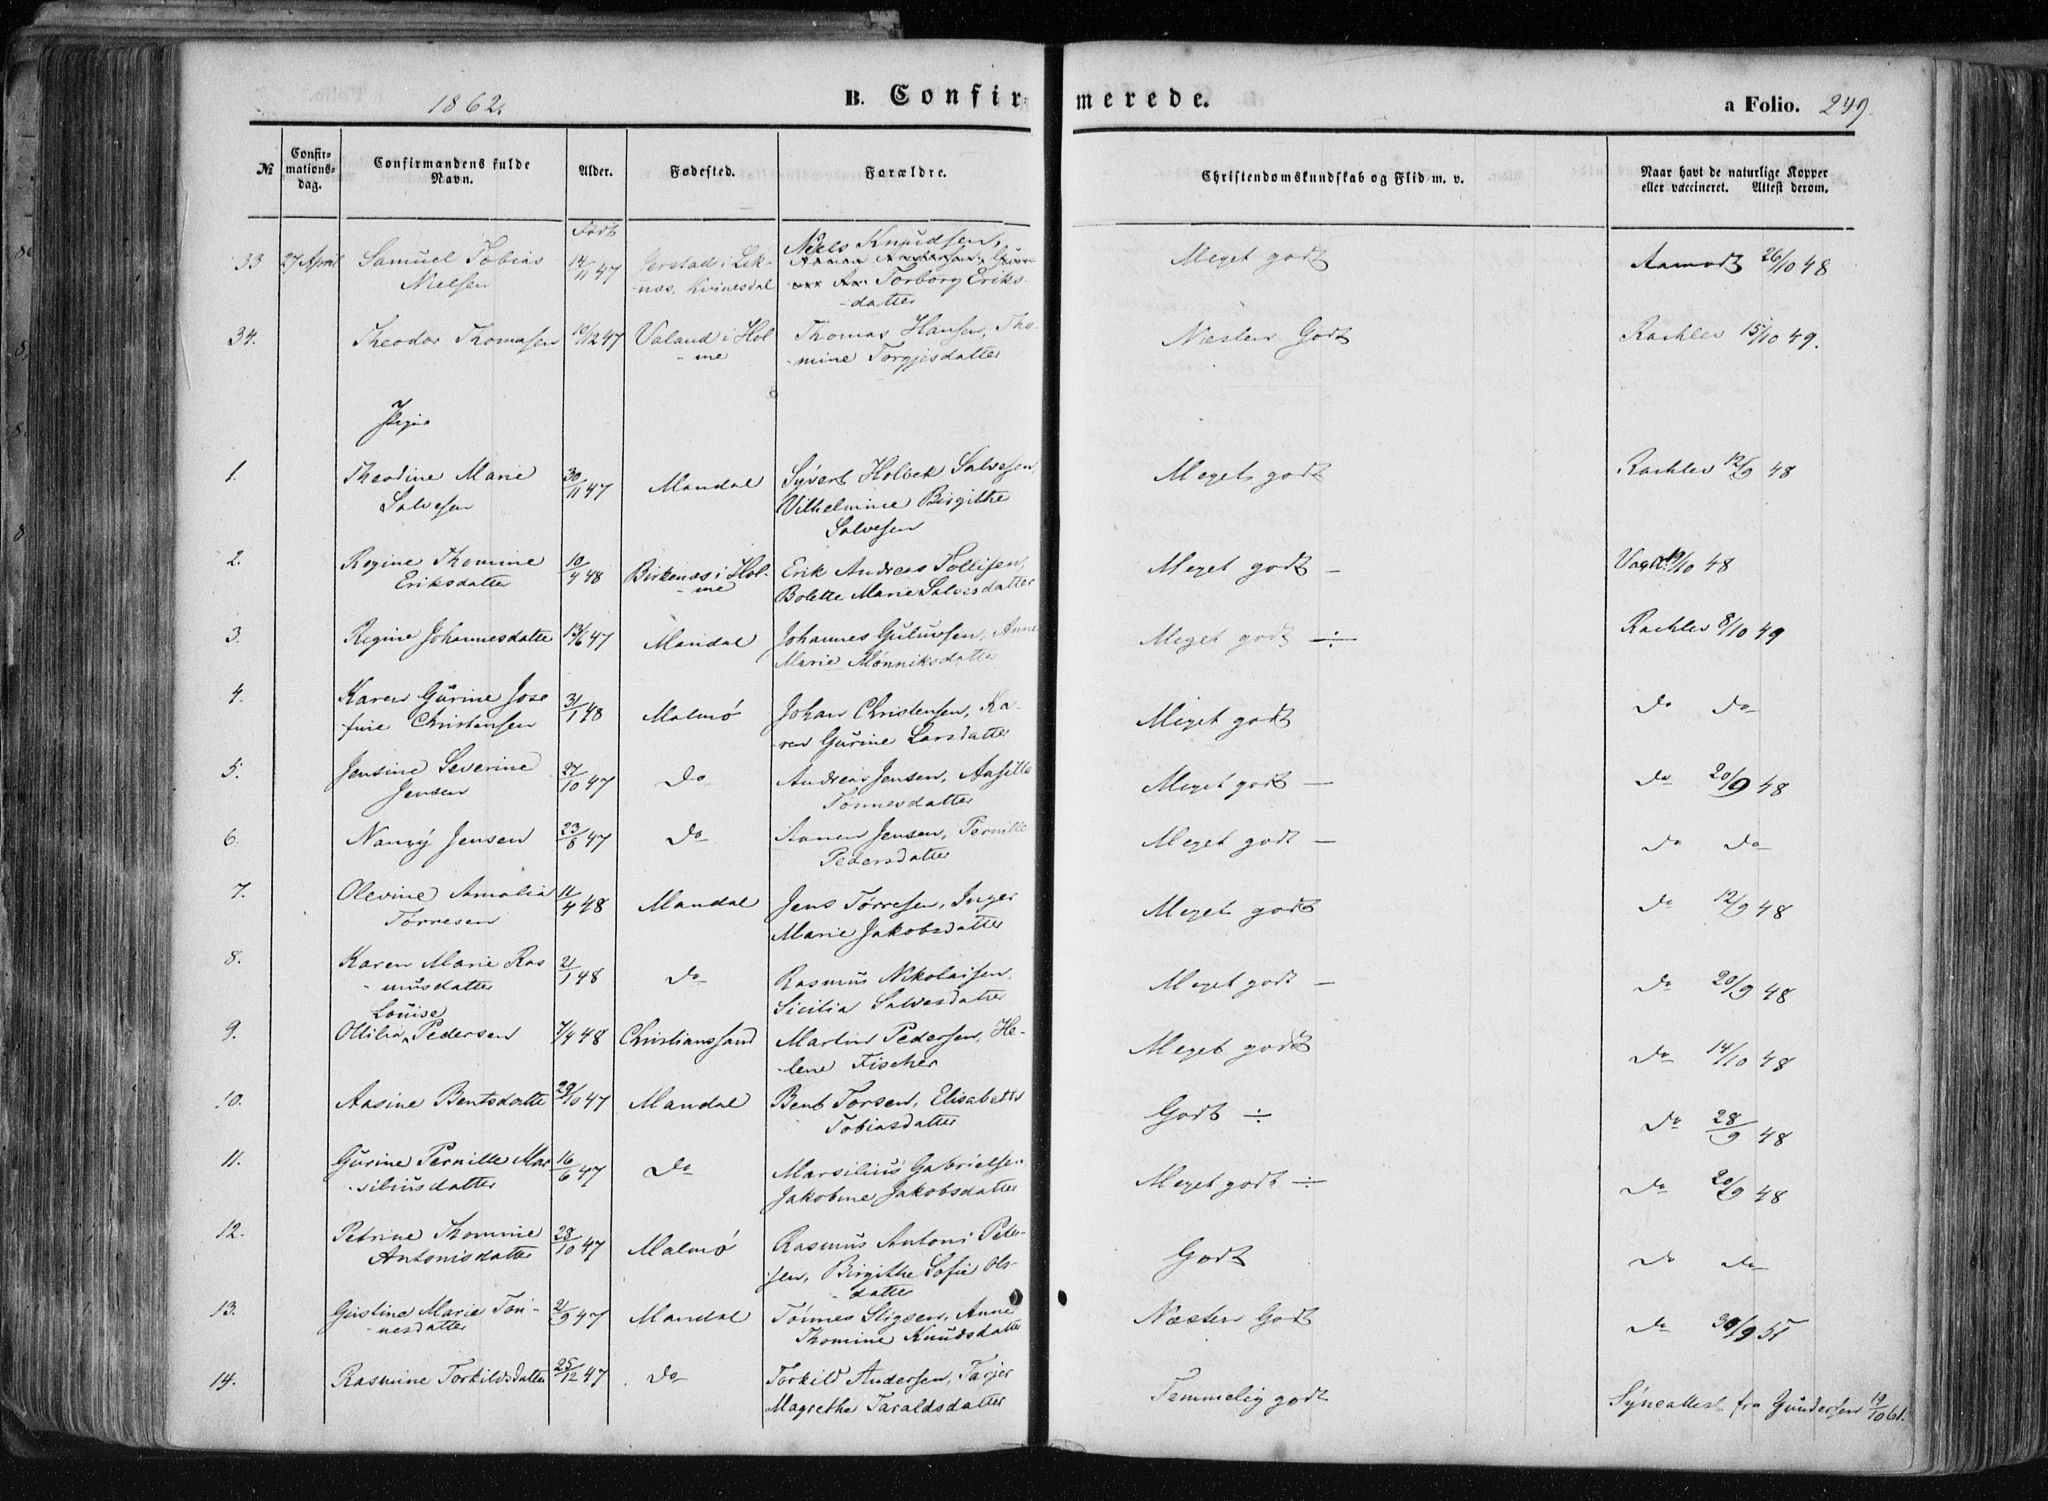 1862.
B. Confirmerede.
a Folio. 249.
№
Confir-
mations-
dag.
Confirmandens fulde
Navn.
Alder.
Fødested.
Forældre.
Christendomskundskab og Flid m. v.
Naar havt de naturlige Kopper
eller vaccineret. Attest derom.
Født
33 27 April Samuel Tobias 14/11 47 Jerstad i Lik- Niels Knudsen, Meget godt Aamodt 26/10 48
Nielsen -nes, Kvinesdal Torborg Eriks-
-datter
34. Theodor Thomasen 10/12 47 Valand i Hol- Thomas Hansen, Tho- Næsten Godt Rachlev 15/10 49.
-me -mine Torgjesdatter
Piger
1. Theodine Marie 30/11 47 Mandal Syvert Holbek Salvesen, Meget godt Rachlev 12/9 48
Salvesen Vilhelmine Birgithe
Salvesen
2. Regine Thomine 10/4 48 Birkenæs i Hol- Erik Andreas Tollisen, Meget godt - 19/10 48
Eriksdatter -me Bolette Marie Salvisdatter
3. Regine Johannesdatter 13/6 47 Mandal Johannes Guluvsen, Anne Meget godt ÷ Rachlev 8/10 49
Marie Mønniksdatter
4. Karen Gurine Jose 31/1 48 Malmø Johan Christensen, Ka- Meget godt Do Do
fine Christensen ren Gurine Larsdatter
5. Jensine Severine 27/10 47 Do Andreas Jensen, Aasille Meget godt - Do 20/9 48
Jensen Tønnesdatter
6. Nancy Jensen 23/8 47 Do Aanen Jensen, Pernille Meget godt - Do Do
Pedersdatter
7. Olevine Amalia 11/4 48 Mandal Jens Tørresen, Inger Meget godt Do 12/9 48
Tørresen Marie Jakobsdatter
8. Karen Marie Ras 2/1 48 Do Rasmus Nikolaisen, Meget godt - Do 20/9 48
-musdatter Sicilia Salvesdatter
Louise
9. Ottilia Pedersen 7/4 48 Christianssand Martin Pedersen, He- Meget godt Do 14/10 48
lene Fischer
10. Aasine Bentsdatter 29/10 47 Mandal Bent Torsen, Elisabeth Godt ÷ Do 28/9 48
Tobiasdatter
11. Gurine Pernille Mar 16/6 47 Do Marsilius Gabrielsen, Meget godt ÷ Do 20/9 48
-siliusdatter Jakobine Jakobsdatter
12. Petrine Thomine 28/10 47 Malmø Rasmus Antoni Peder- Godt Do Do
Antonisdatter sen, Birgithe Sofie Ols-
-datter
13. Gustine Marie Tøn- 2/9 47 Mandal Tønnes Stigsen, Anne Næsten Godt Do 30/9 51
-nesdatter Thomine Knudsdatter
14. Rasmine Torkildsdatter 25/12 47 Do Torkild Andersen, Tarjer Temmelig godt Synsattest fra Gundersen 19/10 61.
Magrethe Taraldsdatter